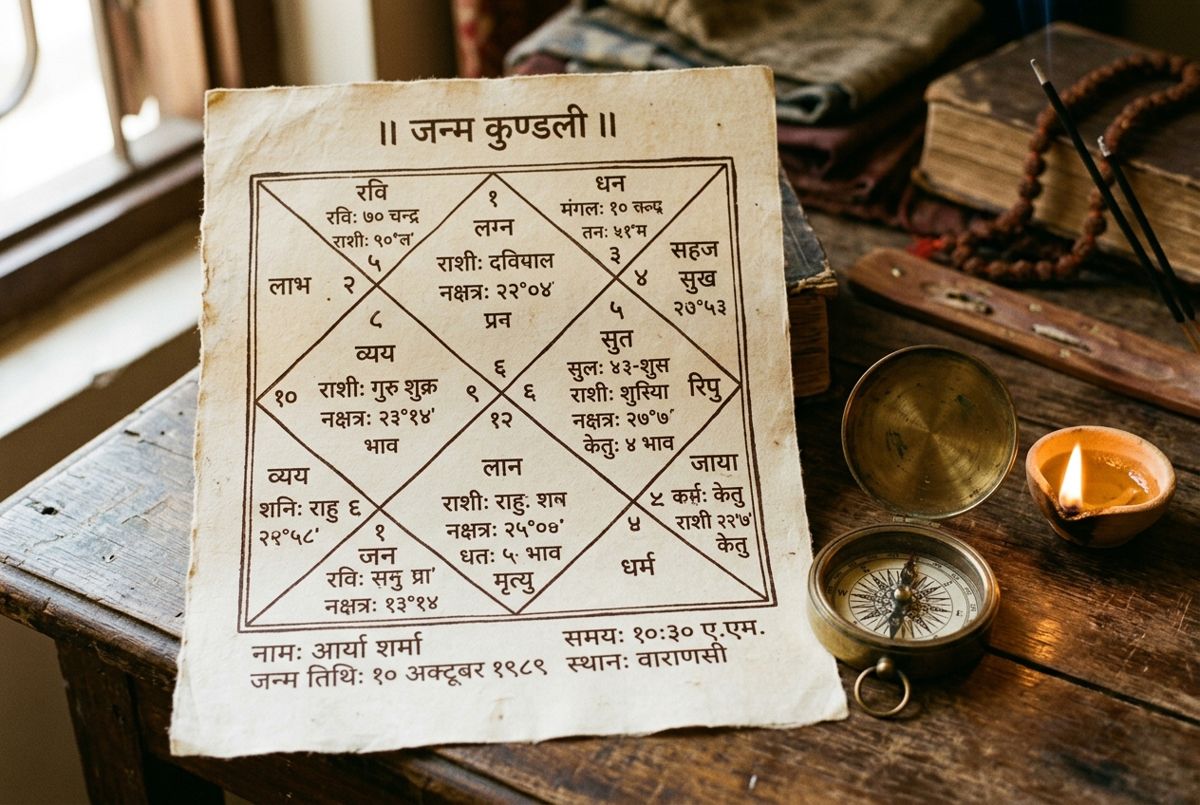 ॥ जन्म कुण्डली ॥
रवि
रविः ७० चन्द्र
राशीः ९०°ल'
५
१
लग्न
राशीः दवियाल
नक्षत्रः २२°०४'
प्रन
६
धन
मंगलः १०
तनः ५१°म
३
सहज
४ सुख
२७°५३
लाभ २
८
व्यय
राशीः गुरु शुक्र
नक्षत्रः २३°१४'
भाव
१०
९
५
सुत
सुलः ४३-शुस
राशीः शुस्यिा
नक्षत्रः २७°७'
केतुः ४ भाव
६
रिपु
१२
लान
राशीः राहुः शब
नक्षत्रः २५°०७'
धतः ५· भाव
मृत्यु
व्यय
शनिः राहु ६
२२°५८'
१
जन
रविः समु प्रा'
नक्षत्रः १३°१४
जाया
कर्मः केतु
राशी २२'७'
केतु
४
धर्म
नामः आर्या शर्मा
समयः १०:३० ए.एम.
जन्म तिथिः १० अक्टूबर १९८९
स्थानः वाराणसी
W
E